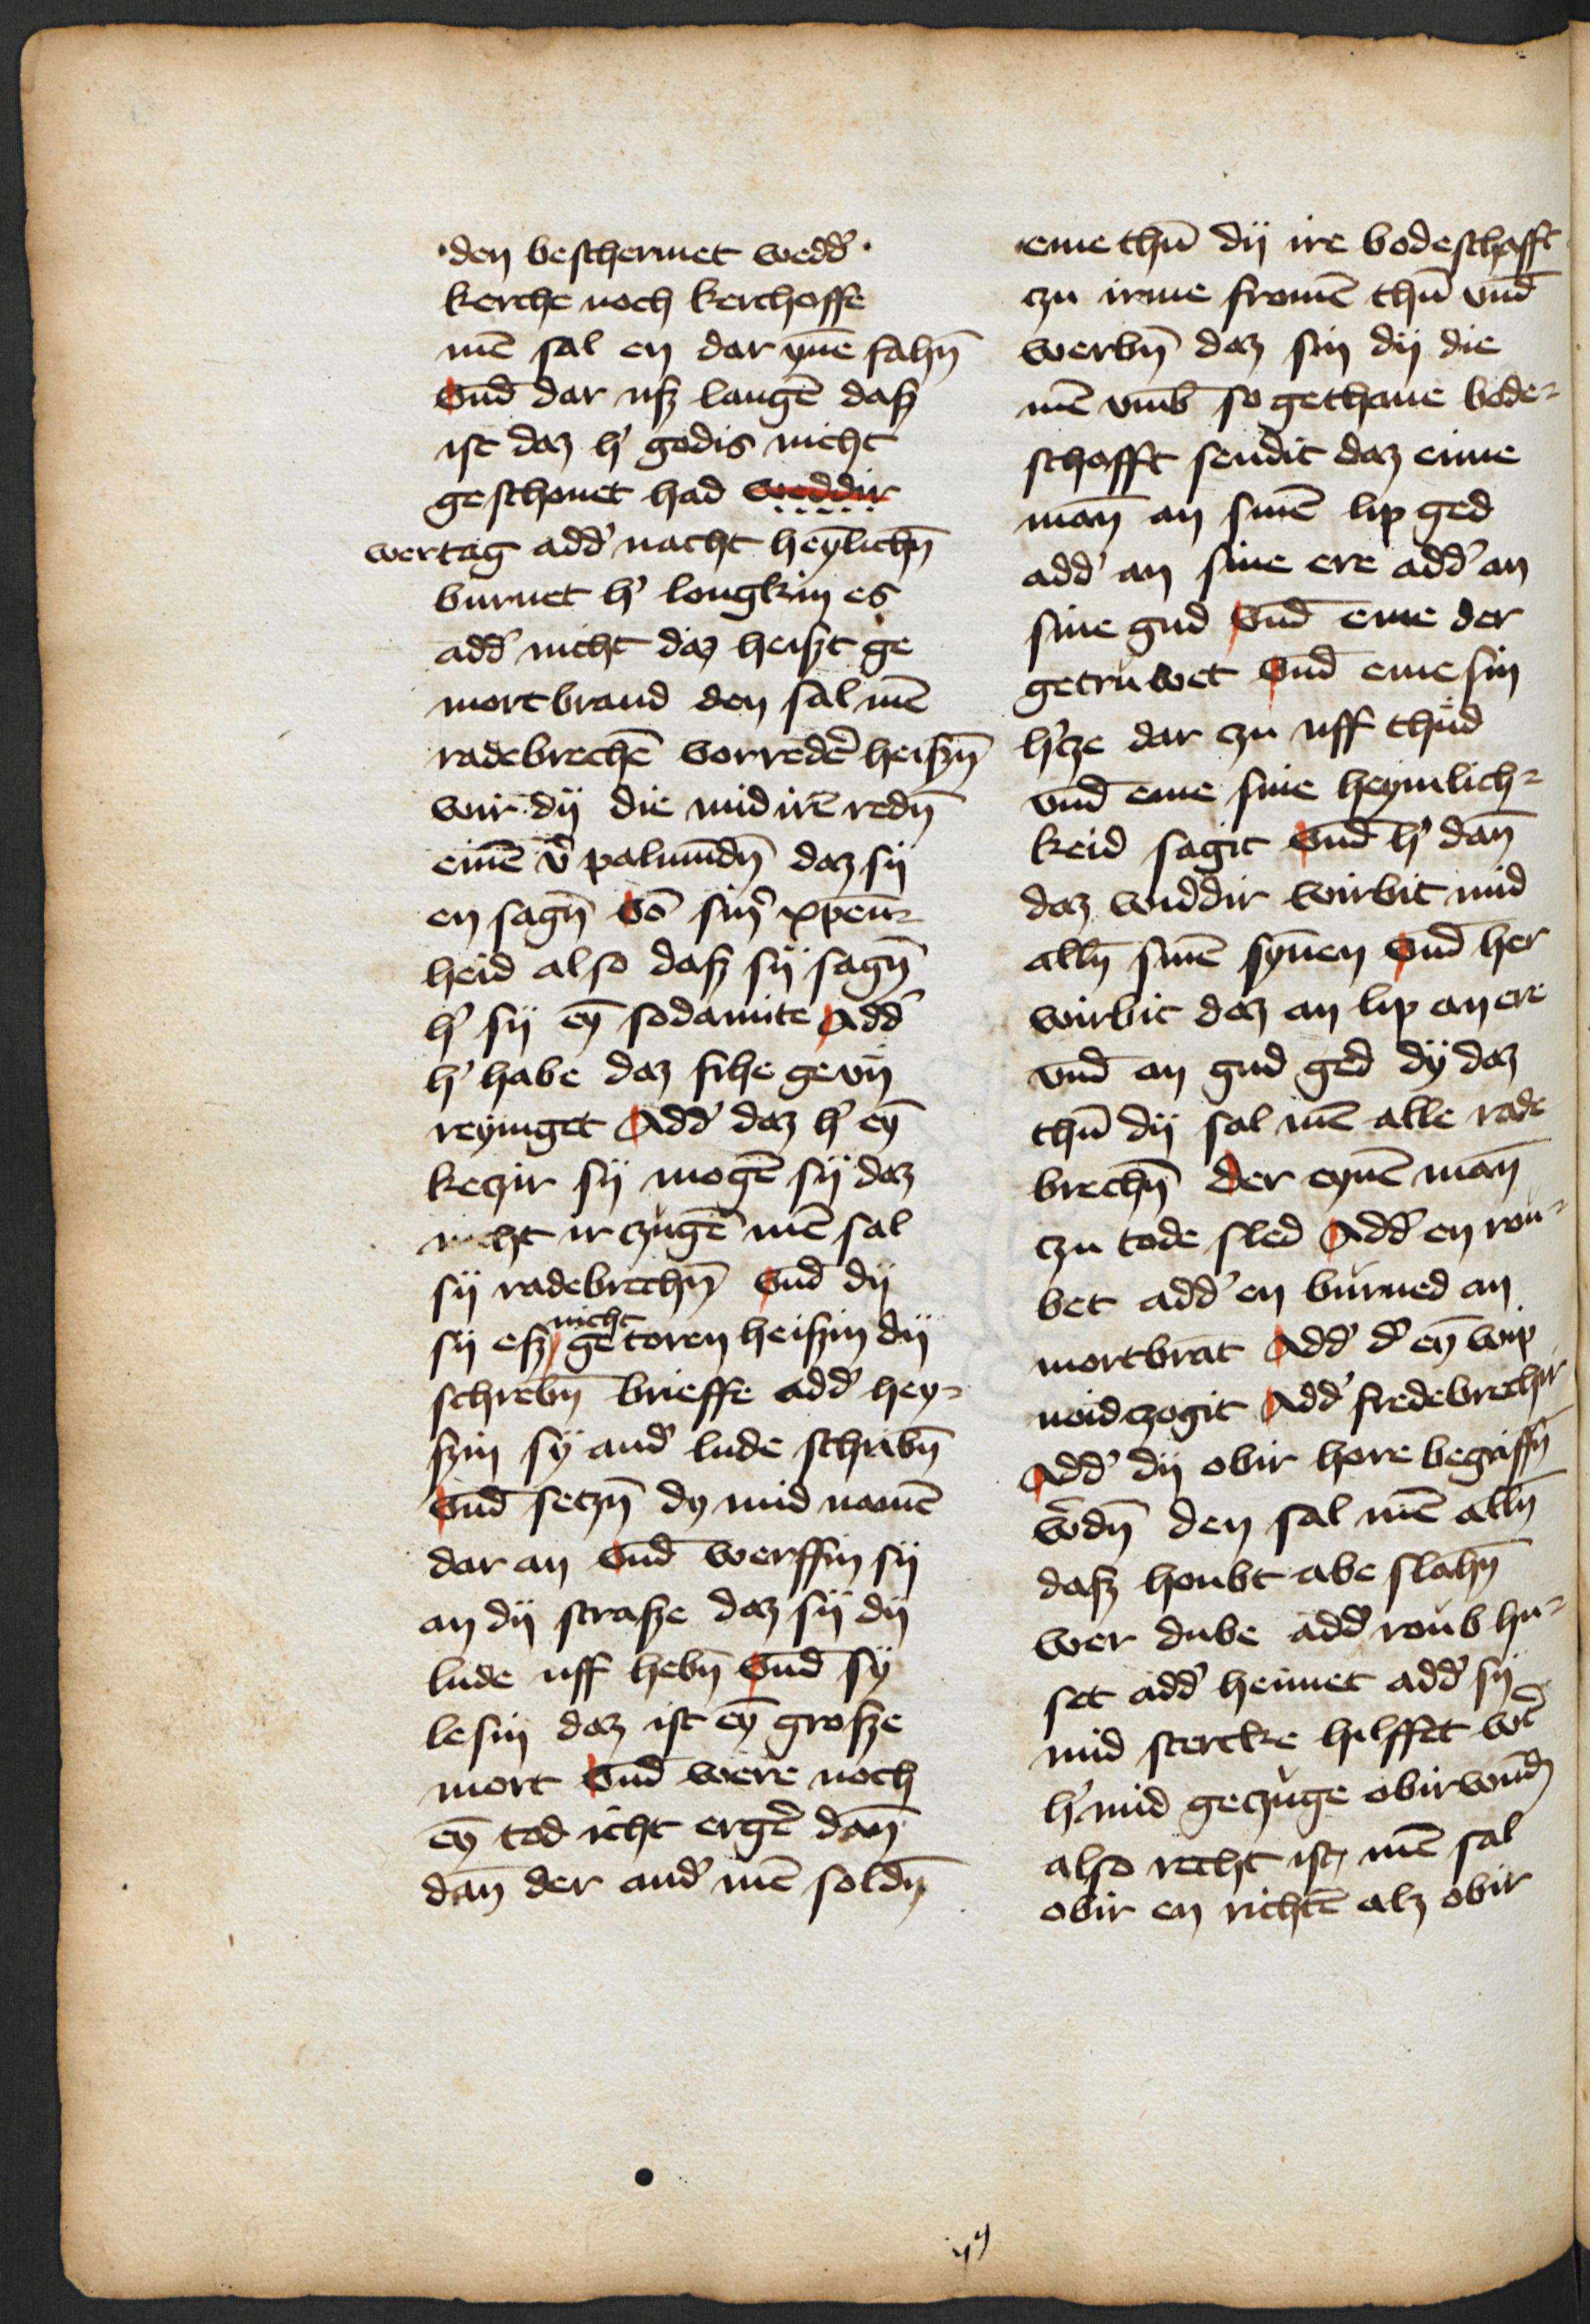 den beschermet wedd'
kerche noch kerchoffe
mē sal en dar yn̄e fahn̄
Vnd̄ dar uſz langē daſz
iſt daz h' godis nicht
geschonet had weddir
wertag add' nacht heȳlichn̄
burnet h' longkin es
add' nicht daz heiſzt ge
mortbrand den sal mē
radebrechē vorredē' heiſzn̄
wir dij die mid irē redn̄
einē v' palmūdn̄ daz sij
en sagn̄ vō sin' xpen̄-
heid also daſz sij sagn̄
h' sij eȳ sodamite Add'
h' habe daz fihe gevn̄
reyniget Add' daz h' eȳ
keczir sij mogē sij daz
nicht ir czugē mē sal
sij radebrechn̄ Vnd̄ dij
sij eſz nicht getoren heiſzin dij
schrebn̄ brieffe add' hey-
ſzin sij and' lude schribn̄
Vnd̄ seczn̄ dy mid namē
dar an Vnd̄ werffin sij
an dij straſze daz sij dij
lude uff hebn̄ Vnd̄ sij
lesin daz iſt eȳ groſze
mort Vnd̄ were noch
eȳ tod icht ergē' dan̄
dan̄ der and' mē soldn̄
eme thū dij ire bodeschafft
czu irme fromē thū vnd̄
werbn̄ daz sin dij die
mē vmb so gethane bode-
schafft sendit daz eime
man̄ an sinē lip ged
add' an sine ere add' an
sine gud Vnd̄ eme der
getruwet Vnd̄ eme sin
h'cze dar czu uff thud
vnd̄ eme sine heymlich-
keid sagit Vnd̄ h' dan̄
daz widdir wirbit mid
alln̄ sinē syn̄en Vnd̄ her
wirbit daz an lip an ere
vnd̄ an gud ged dij daz
thū dij sal mē alle rade
brechn̄ Der eynē man̄
czu tode sled Add' en rou-
bet add' en burned an
mortbrāt Add' d' eȳ wip
noidczogit Add' fredebrechir
Add' dij obir hore begriffn̄
w'dn̄ den sal mē alln̄
daſz houbt abe slahn̄
wer dube add' roub hu-
set add' heimet add' sij
mid stercke hilffet w't
h' mid geczuge obirwnd̄
also recht iſt mē sal
obir en richtē alz obir